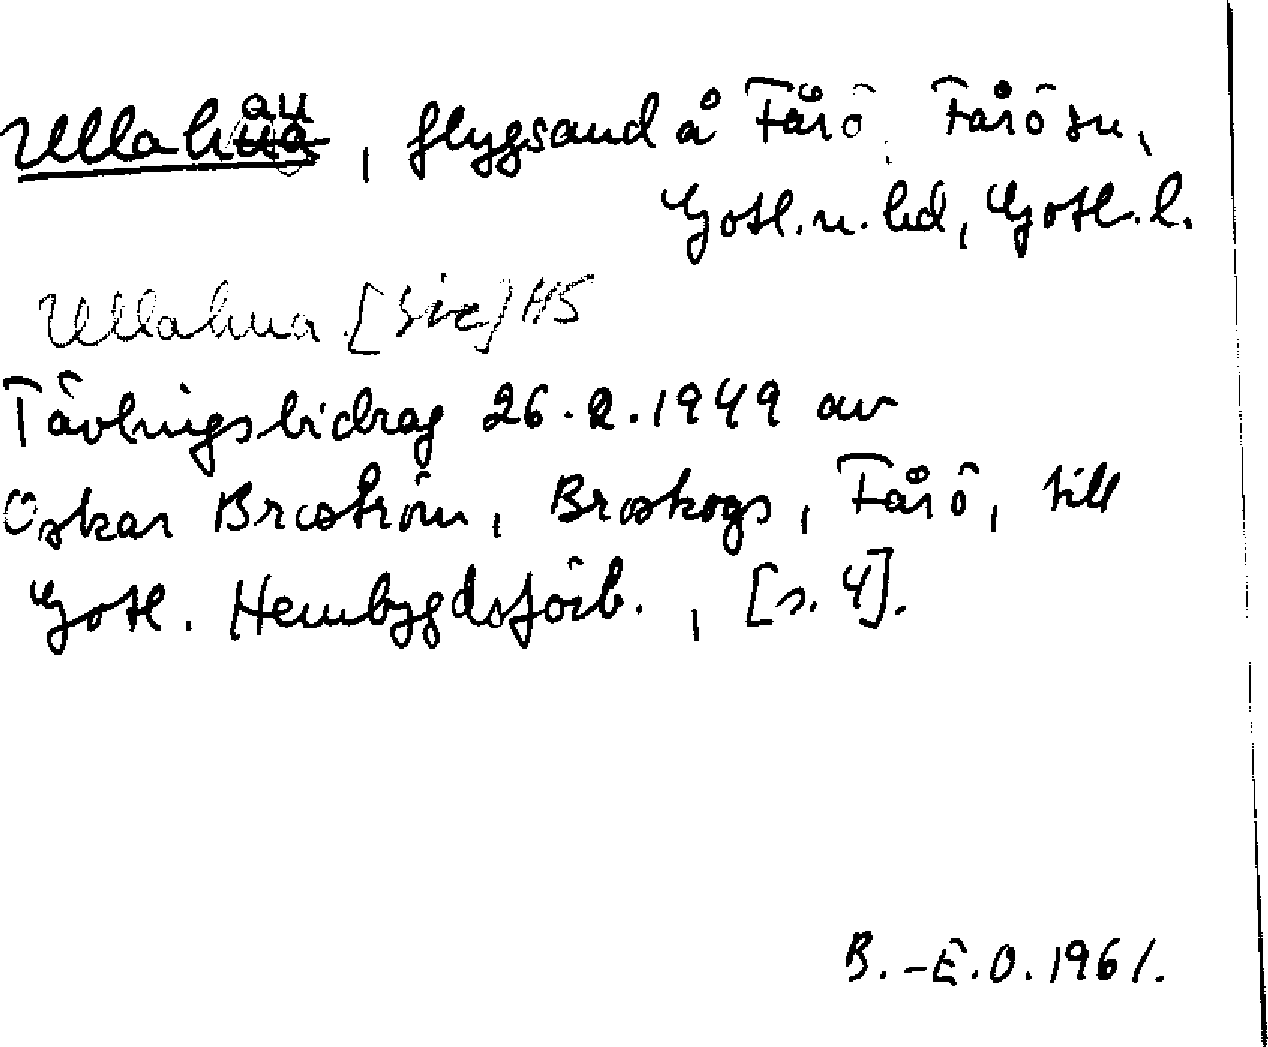 Ullahau, flygsand å Fårö, Fårö sn,
Gotl. n. hd, Gotl. l.
Ullahua [sic] HS
Tävlingsbidrag 26.2.1949 av
Oskar Broström, Broskogs, Fårö, till
Gotl. Hembygdsförb., [s. 4].
B.-E.O. 1961.